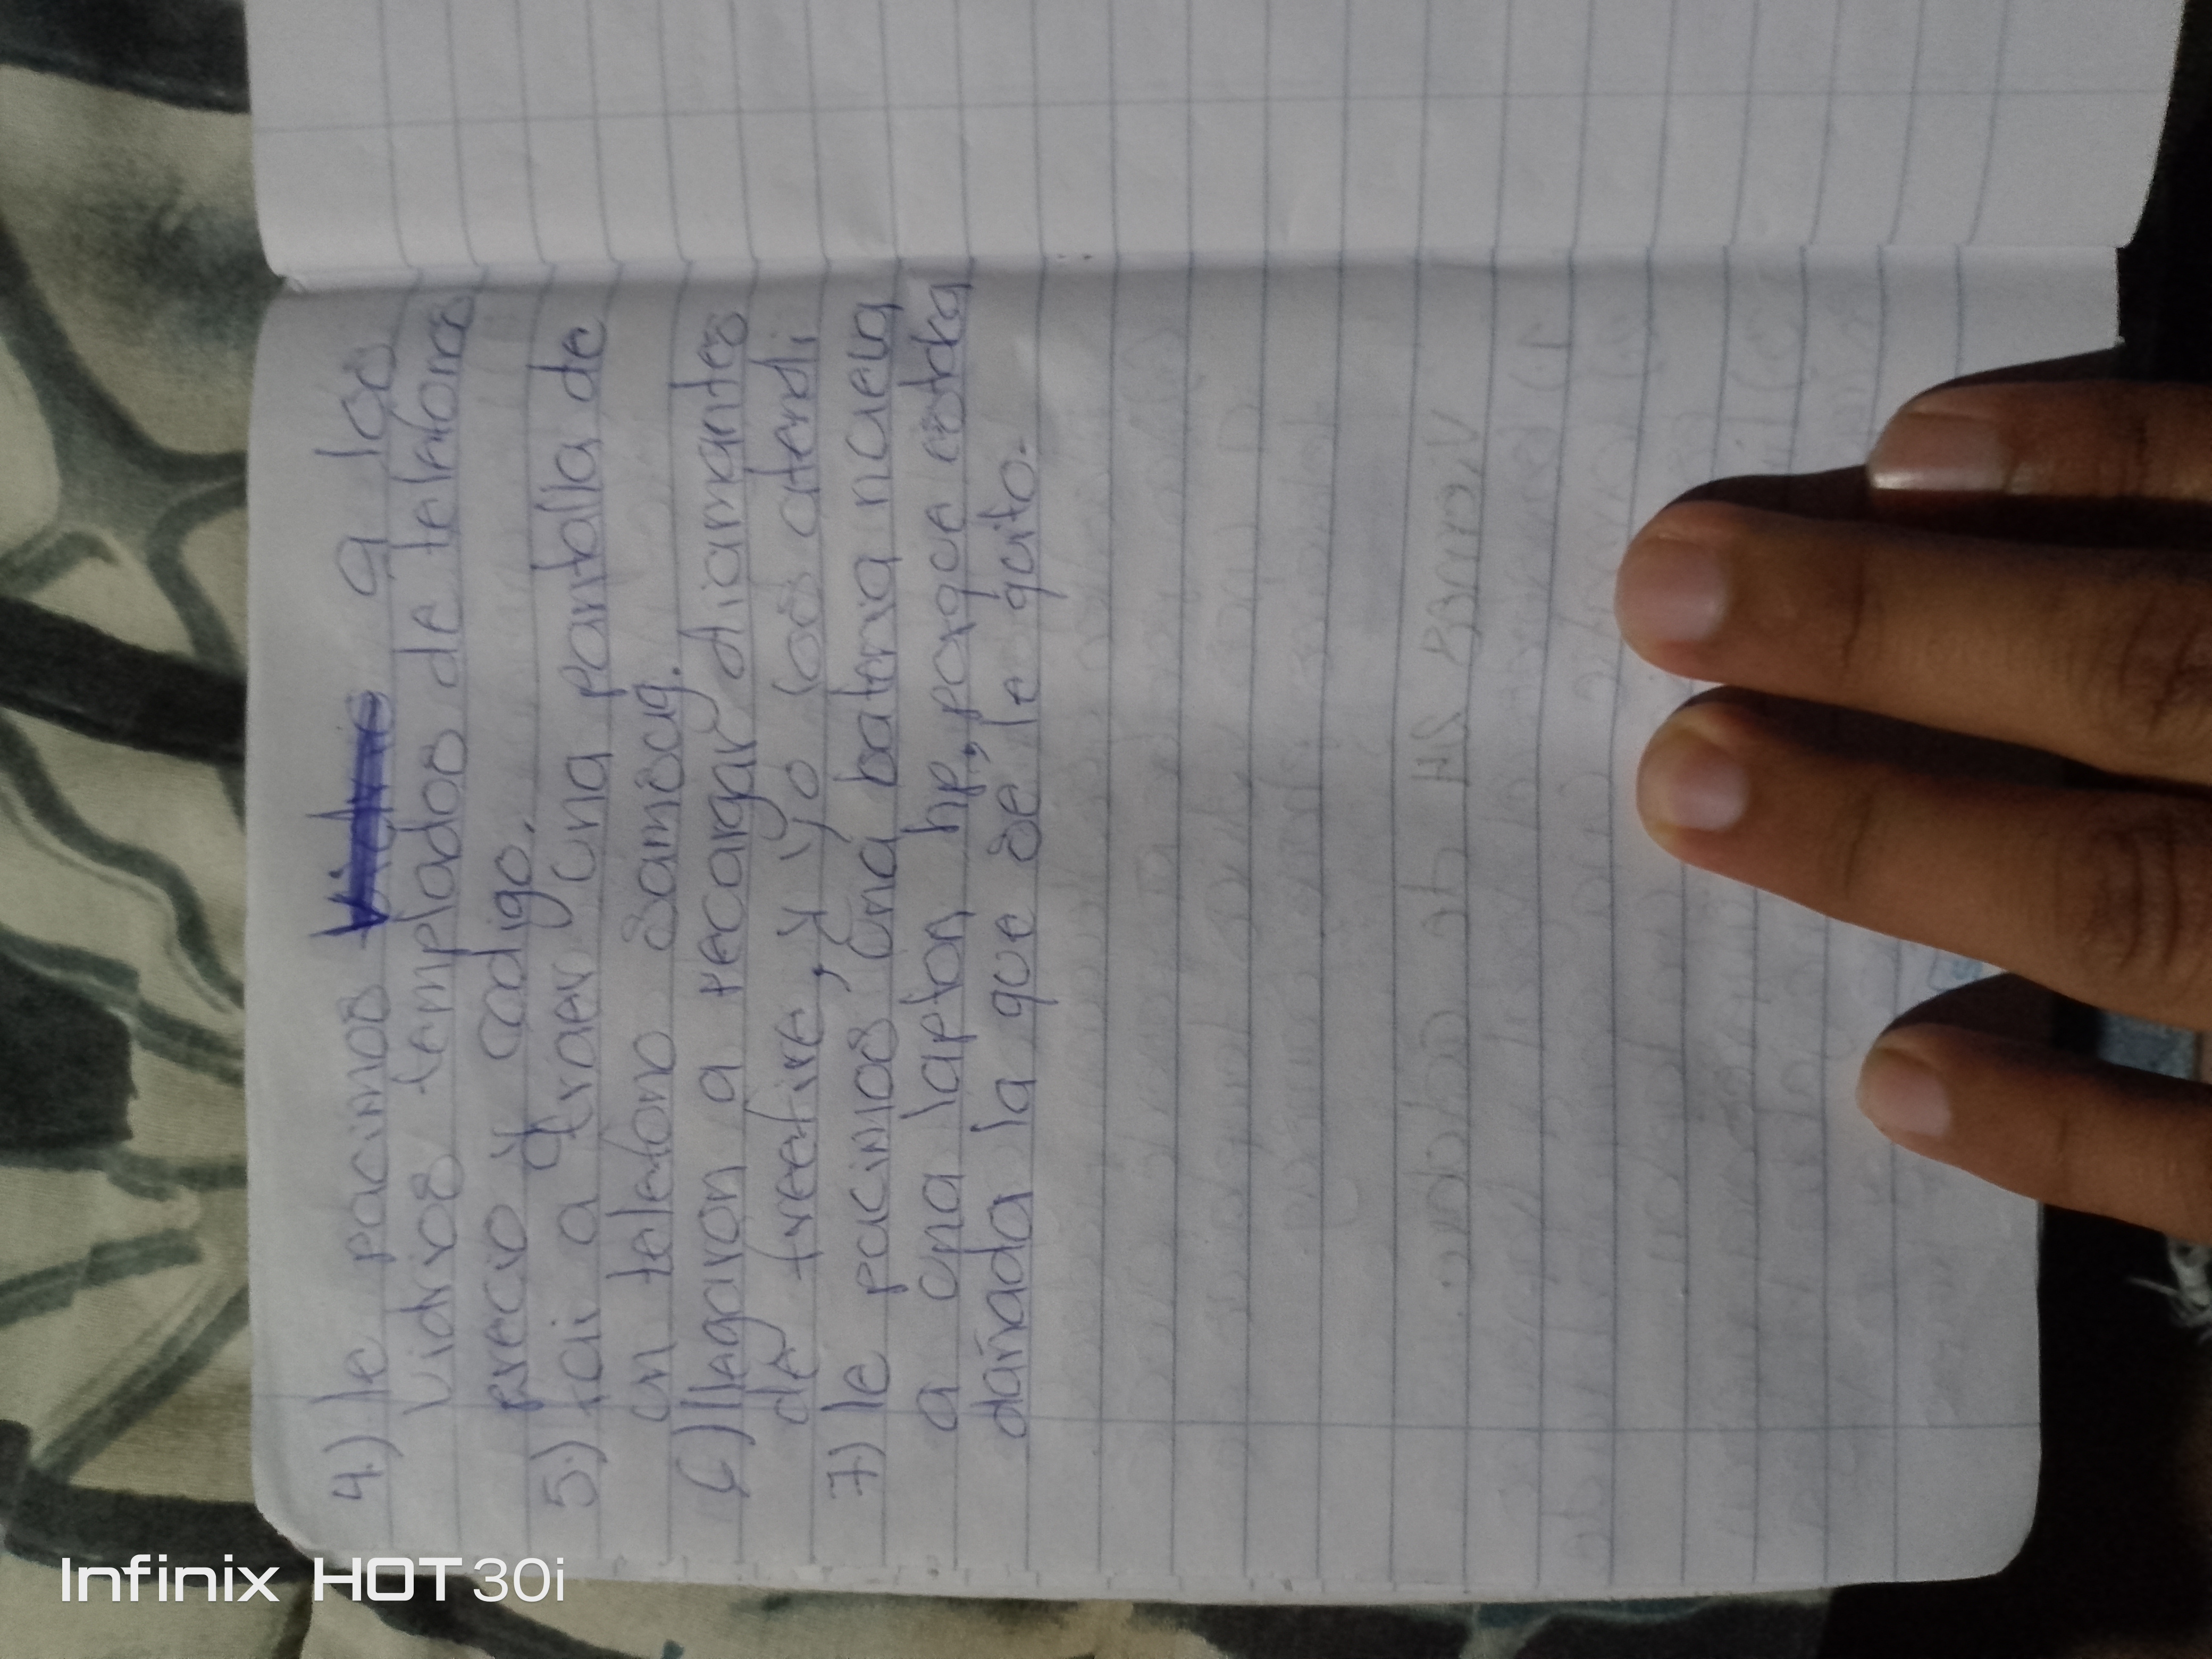 4.) le pucimos a los
vidrios templados de telefonos
precio y codigo.
5.) fui a traer una pantalla de
un telefono samscug.
6) llegaron a recargar diamantes
de freefire, y yo los atendi
7) le pucimos una bateria nueva
a una lapton hp, porque estaba
dañada la que se le quito.
Infinix HOT 30i